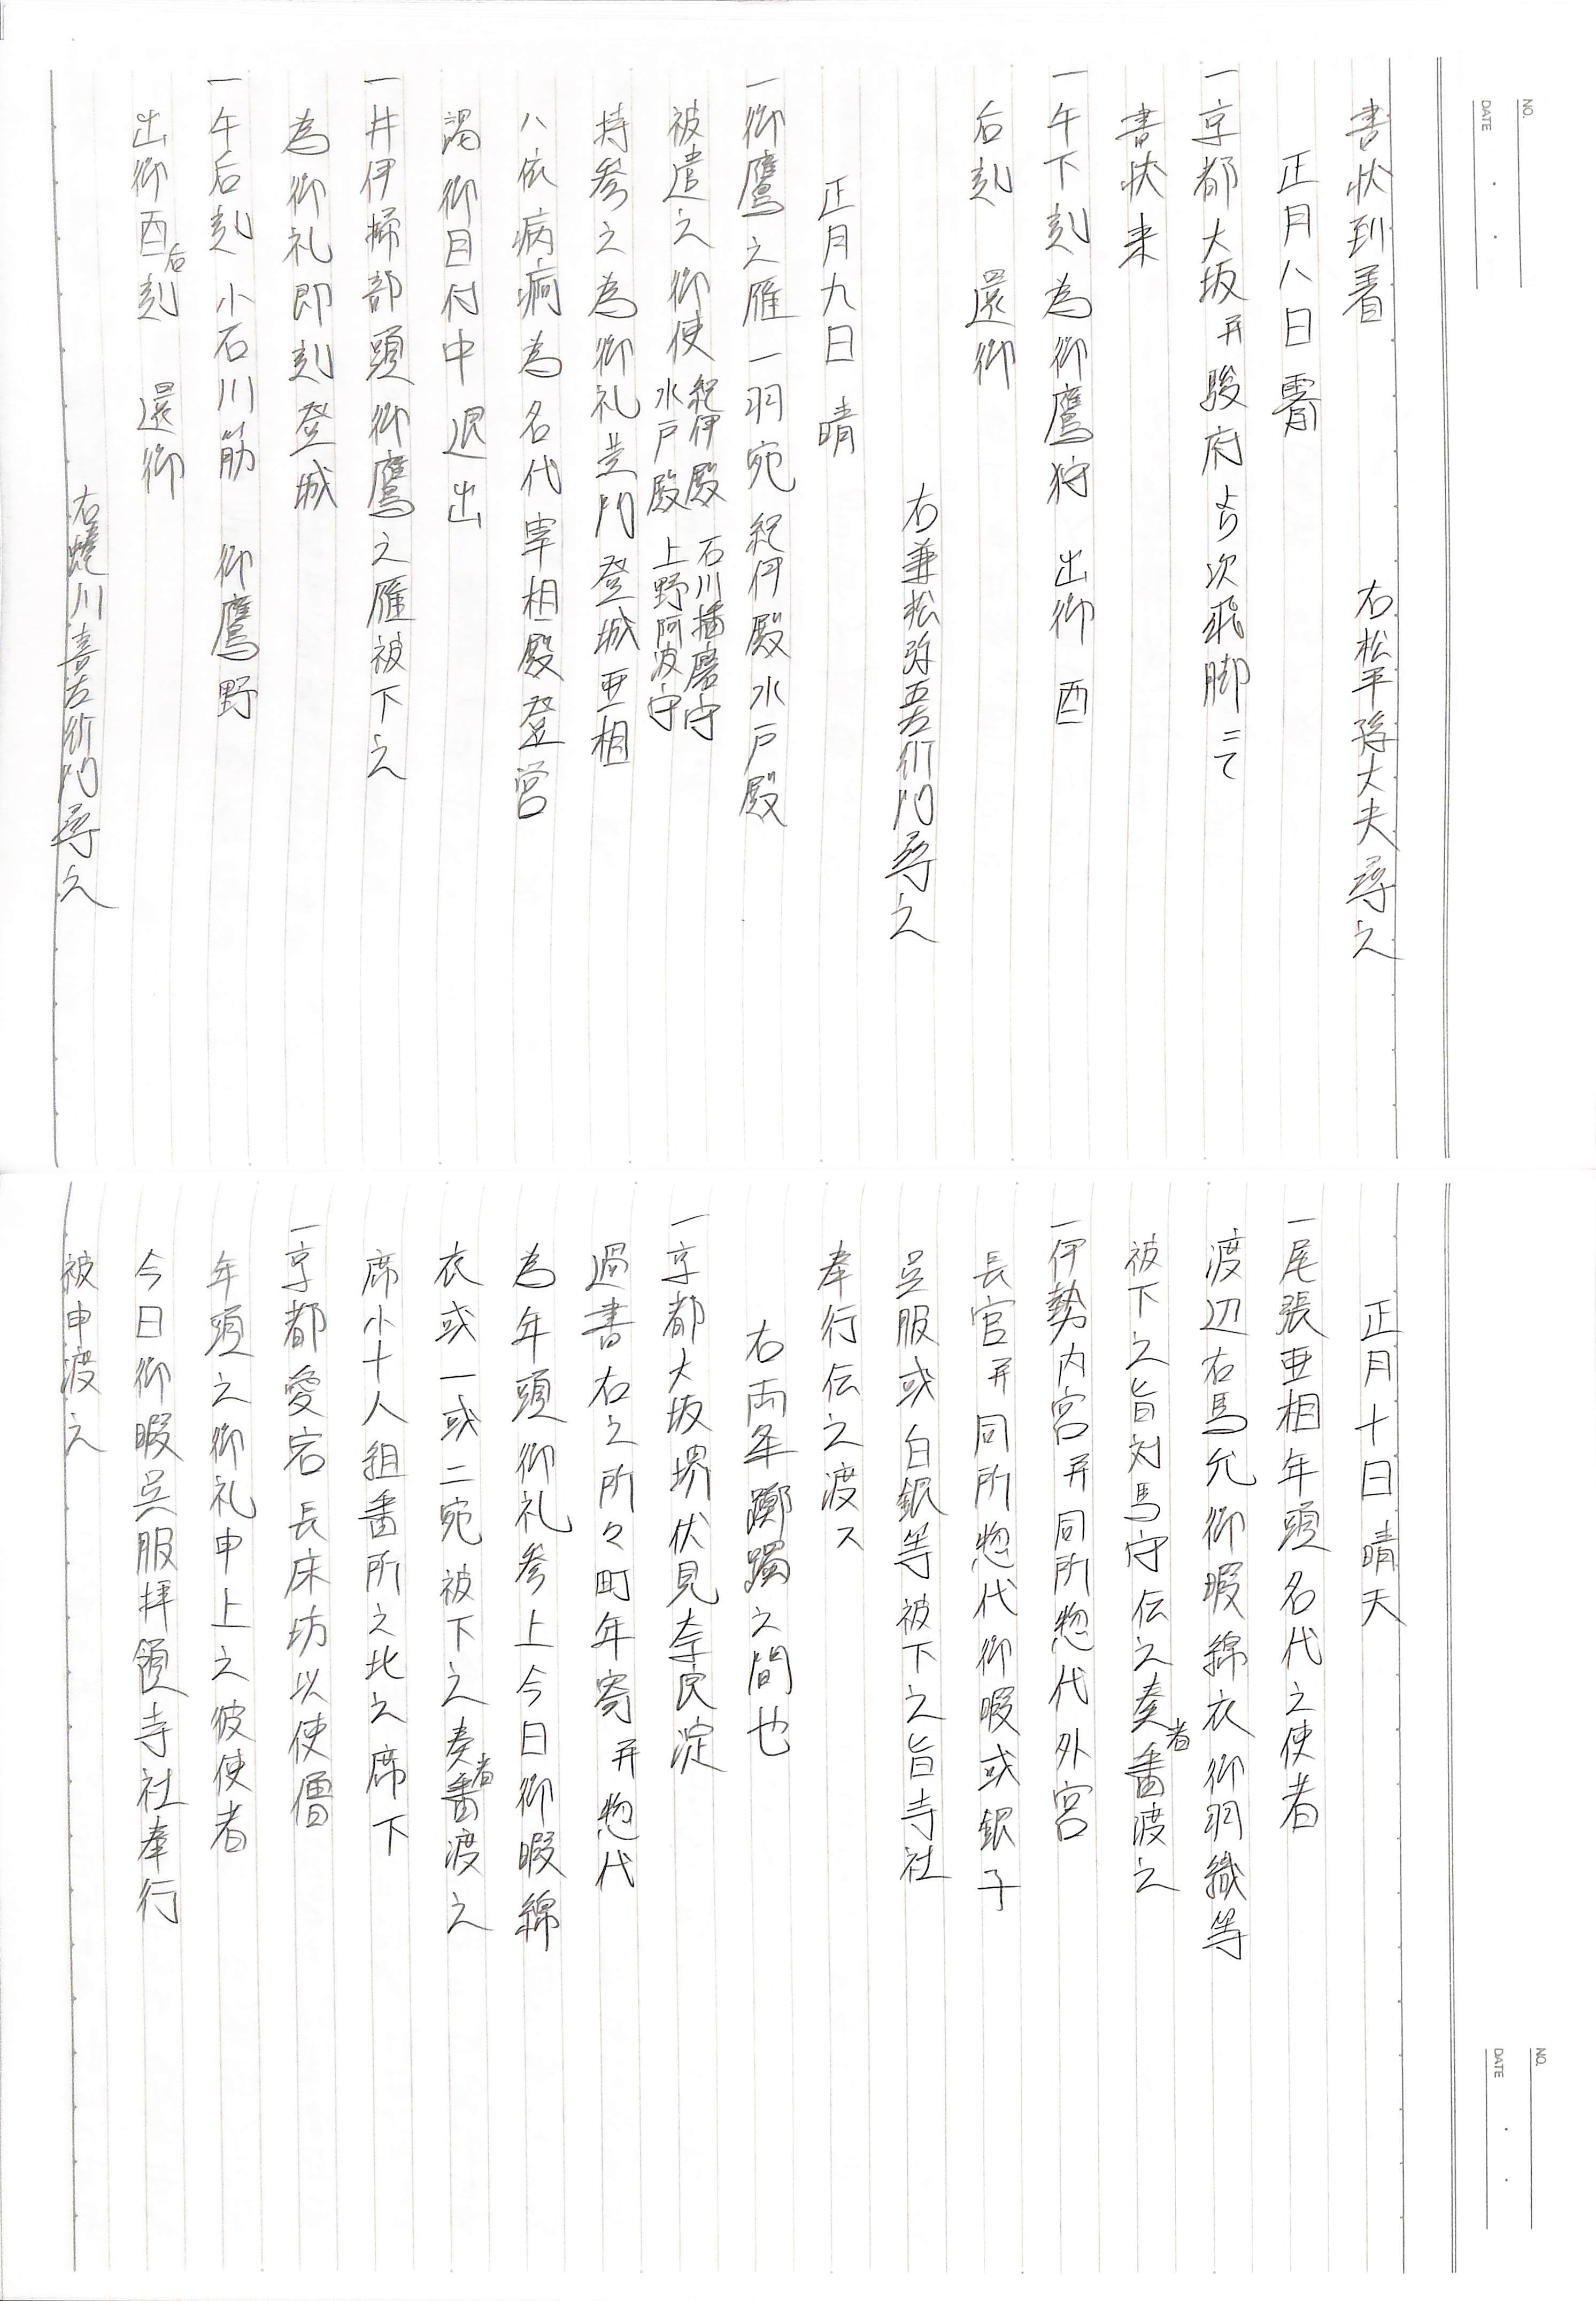 NO.
DATE
書状到着
右松平隼大夫尋之
正月八日 霽
一京都大坂并駿府ゟ次飛脚ニて
書状来
一午下刻為御鷹狩 出御 酉
后刻 還御
右兼松弥五左衛門尋之
正月九日 晴
一御鷹之雁一羽宛紀伊殿水戸殿
被遣之御使 紀伊殿 石川播磨守
水戸殿 上野阿波守
持参之為御礼黄門登城亜相
ハ依病痾為名代宰相殿登営
謁御目付中退出
一井伊掃部頭御鷹之雁被下之
為御礼即刻登城
一午后刻小石川筋 御鷹野
出御酉后刻 還御
右蜷川喜左衛門尋之
NO.
DATE
正月十日 晴天
一尾張亜相年頭名代之使者
渡辺右馬允御暇綿衣御羽織等
被下之旨対馬守伝之奏者番渡之
一伊勢内宮并同所惣代外宮
長官并同所惣代御暇或銀子
呉服或白銀等被下之旨寺社
奉行伝之渡ス
右両条躑躅之間也
一京都大坂堺伏見奈良淀
過書右之所々町年寄并惣代
為年頭御礼参上今日御暇綿
衣或一或二宛被下之奏者番渡之
席小十人組番所之北之席下
一京都愛宕長床坊以使僧
年頭之御礼申上之彼使者
今日御暇呉服拝領寺社奉行
被申渡之